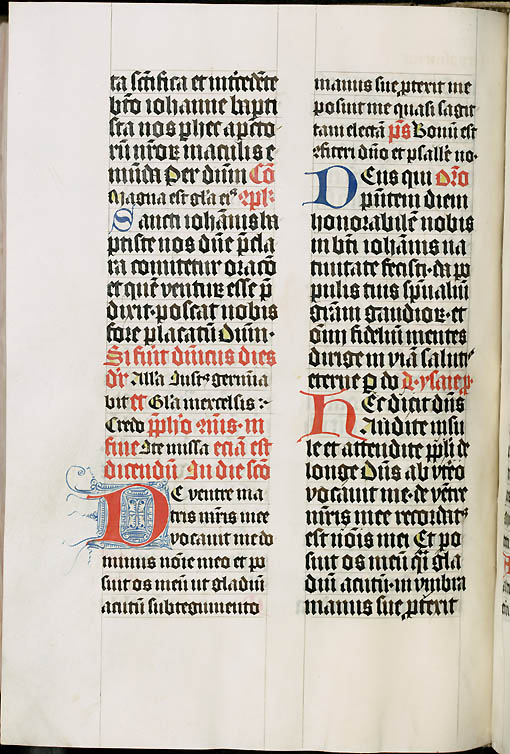 ta scĩfica et ĩtcedẽte
bto iohanne bapti
sta nos p̱ hec ap̃cto
rũ nr̃oꝝ maculis e
mũda Per dñm Cõ
Magna est gl̃a eiꝰ ꝯpl̃r
Sancti iohãnis ba
ptiste nos dñe p̃cla
ra comitetur oracõ
et quẽ ventuꝝ esse p̃
dixit · poscat nobis
fore placatũ Dñm ·
Si fũit dñicus dies
dr̃ All̃a Iustꝰ germĩa
bit et Gl̃a inexcelsis :
Credo
fine Ite missa eciã est
dicendũ In die scõ
De ventre ma
tris mr̃is mee
vocauit me do
minus nõie meo et po
suit os meũ ut gladiũ
acutũ subtegumento
manus sue ꝓtexit me
posuit me quasi sagit
tam electã p̃s Bonũ est
ꝯfiteri dño et psall̃e no ·
Deus qui Or̃o
p̃ntem diem
honorabilẽ nobis
in bti iohãnis na
tiuitate fecisti · da po
pulis tuis sp̃ualiũ
gr̃am gaudioꝝ · et
om̃ fideliũ mentes
dirige in viã saluti
eterne ꝑ do
Hec dicit dñs
Audite insu
le et attendite ppl̃i de
longe Dñs ab vt̃o
vocauit me · de vẽtre
mr̃is mee recordatꝰ
est nõis mei Et po
suit os meũ q̃i gla
diũ acutũ · in vmbra
manus sue ꝓtexit